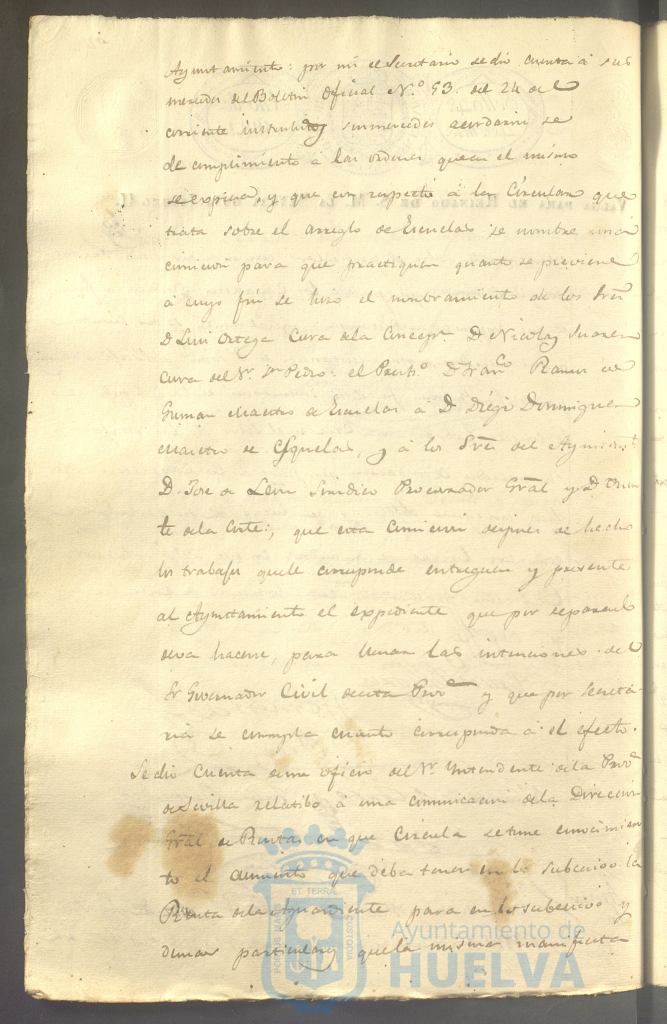 Ayuntamiento: por mi el Secretario se dio cuenta á sus
mercedes del Boletin Oficial N.º 93 del 24 de
corriente sus mercedes acordaron se
de cumplimiento a las ordenes que en el mismo
se expresa, y que con respecto á la Circular que
trata sobre el arreglo de Escuelas se nombre una
comicion para que practiquen quanto se previene
á cuyo fin se hizo el nombramiento de los Sres
D Luis Ortega Cura de la Concepn. D Nicolas Suarez
Cura del Sr. Sn Pedro: el Presbo. D Franco Ramos de
Guzman Maestro de Escuelas á D Diego Dominguez
Maestro de Esquelas, y á los Sres del Ayuntamt.
D. Jose de Leon Sindico Procurador Gral y D
te de la Corte:, que esta Comicion despues de hecho
los trabajos que le corresponde entreguen y presente
al Ayuntamiento el expediente que por separado
deva hacerse, para llenar las intenciones del
Sr Governador Civil de esta Prova y que por Secreta-
ria se cumpla cuanto corresponda á el efecto.
Se dio Cuenta de un oficio del Sr. Yntendente de la Prova
de Sevilla relatibo á una comunicacion de la Direccion
Gral de Rentas en que Circula se tome conocimien
to el aumento que deba tener en lo subcesivo la
Renta del Aguardiente para en lo subcesivo y
demas particulares que la misma manifiesta
ET TERRA
PORTUS MARIS
CUSTODIA
Ayuntamiento de
HUELVA